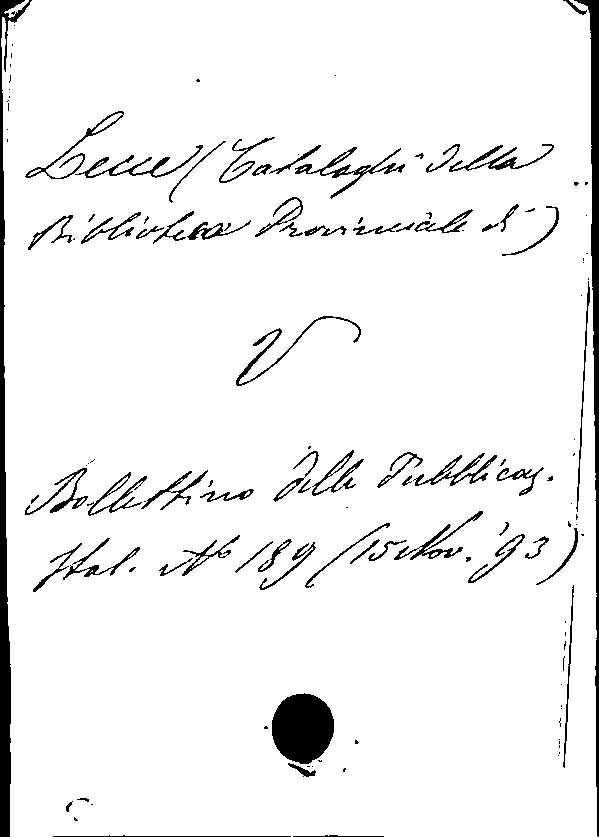 Lecce (Cataloghi della
Biblioteca Provinciale di)
V
Bollettino delle Pubblicaz.
Ital. No 189 (15 Nov. '93)